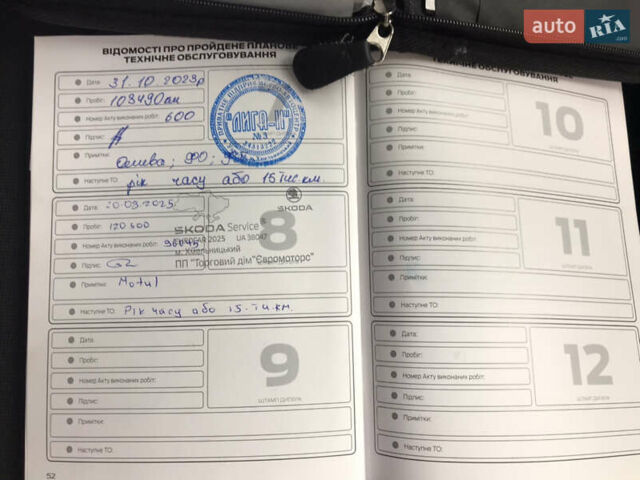 auto RIA .com
ВІДОМОСТІ ПРО ПРОЙДЕНЕ ПЛАНОВЕ
ТЕХНІЧНЕ ОБСЛУГОВУВАННЯ
Дата: 31.10.2023р
Пробіг: 103490км
Номер Акту виконаних робіт: 600
Підпис:
Примітки: Олива;
Наступне ТО: рік часу або 15 тис.км.
"ЛИГА-Н"
№3
Дата: 20.03.2025
Пробіг: 120 600
Номер Акту виконаних робіт:
Підпис:
Примітки: Motul
Наступне ТО: Рік часу або 15-ти.км.
8
ŠKODA
ŠKODA Service
2025 UA 38047
м. Хмельницький
ПП "Торговий дім "Євромоторс"
Дата:
Пробіг:
Номер Акту виконаних робіт:
Підпис:
Примітки:
Наступне ТО:
9
ШТАМП ДИЛЕРА
52
ТЕХНІЧНЕ ОБСЛУГОВУВАННЯ
Дата:
Пробіг:
Номер Акту виконаних робіт:
Підпис:
Примітки:
Наступне ТО:
10
Дата:
Пробіг:
Номер Акту виконаних робіт:
Підпис:
Примітки:
Наступне ТО:
11
ШТАМП ДИЛЕРА
Дата:
Пробіг:
Номер Акту виконаних робіт:
Підпис:
Примітки:
Наступне ТО:
12
ШТАМП ДИЛЕРА